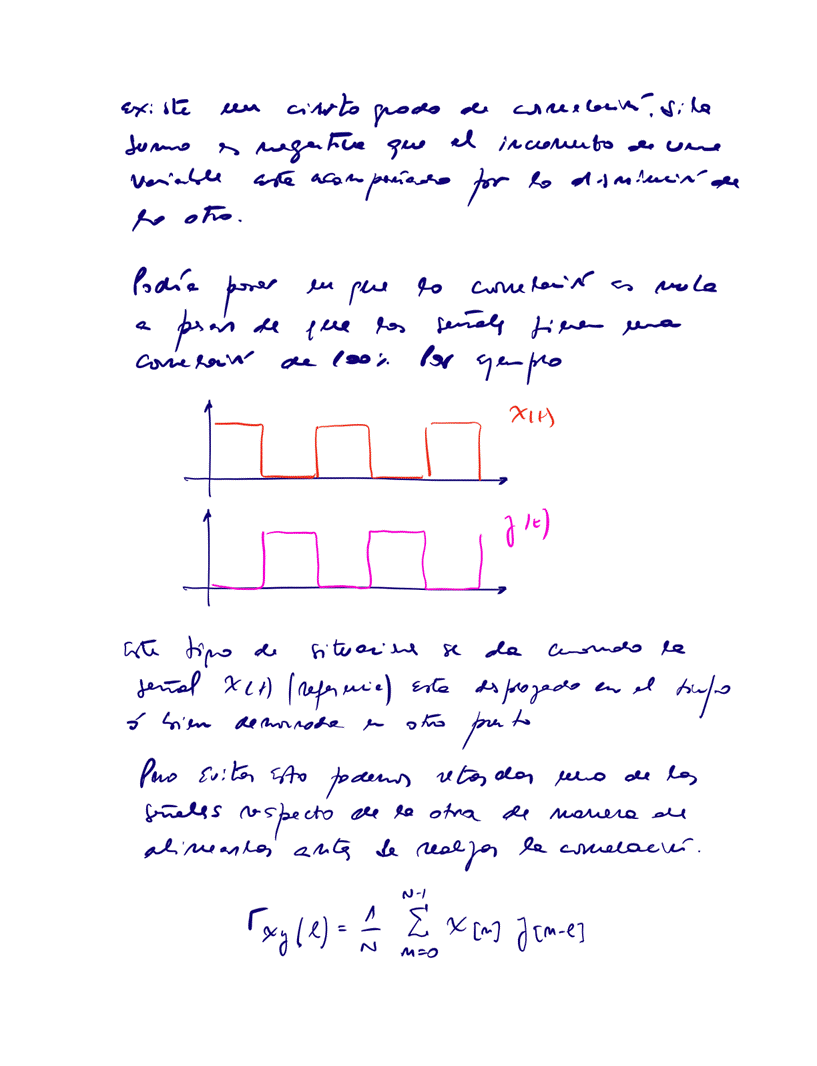 existe un cierto grado de correlación, si la
suma es negativa que el incremento de una
variable este acompañado por la disminución de
la otra.
Podría pasar en que la correlación es nula
a pesar de que las señales tienen una
correlación de 100%. Por ejemplo
x(t)
y(t)
Este tipo de situaciones se da cuando la
señal x(t) (referencia) esta desplazada en el tiempo
ó bien demorada en otro punto
Para evitar esto podemos retardar una de las
señales respecto de la otra de manera de
alinearlas antes de realizar la correlación.
r_{xy}(l) = \frac{1}{N} \sum_{n=0}^{N-1} x[n] y[n-l]